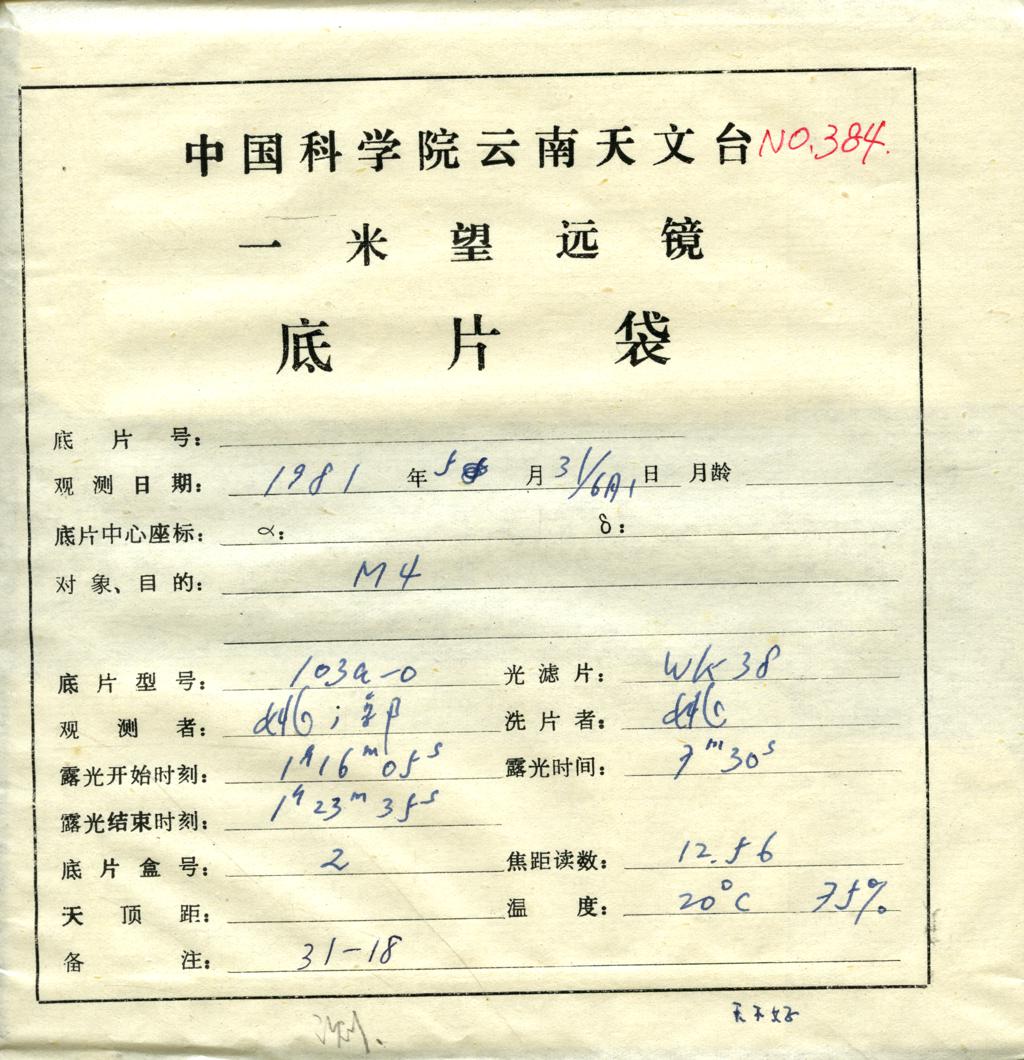 中国科学院云南天文台 NO.384.
一米望远镜
底片袋
底片号:
观测日期: 1981 年 5 月 31/6月1 日 月龄
底片中心座标: α: δ:
对象、目的: M4
底片型号: 103a-O 光滤片: WK38
观测者: ; 郭 洗片者:
露光开始时刻: 1h16m05s 露光时间: 7m30s
露光结束时刻: 1h23m35s
底片盒号: 2 焦距读数: 12.56
天顶距: 温度: 20°C 75%
备注: 31-18
天不好